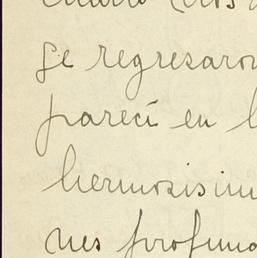 se regresaron
parecí en l
hermosisim
nes profund